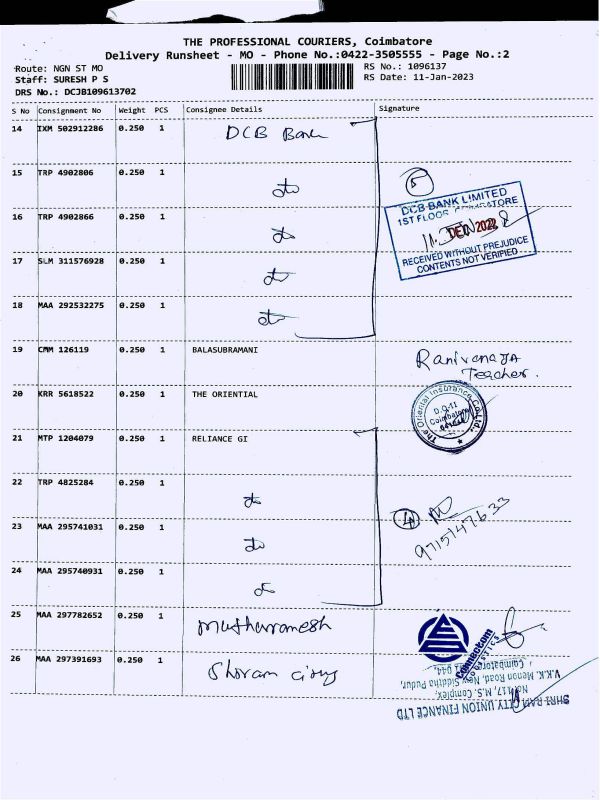 THE PROFESSIONAL COURIERS, Coimbatore
Delivery Runsheet - MO - Phone No.:0422-3505555 - Page No.:2
Route: NGN ST MO
RS No.: 1096137
Staff: SURESH P S
RS Date: 11-Jan-2023
DRS No.: DCJB109613702
S No Consignment No Weight PCS Consignee Details Signature
14 IXM 502912286 0.250 1 DCB Bank
15 TRP 4902806 0.250 1 do
5
16 TRP 4902866 0.250 1 do
DCB BANK LIMITED
1ST FLOOR, COIMBATORE
2022
RECEIVED WITHOUT PREJUDICE
CONTENTS NOT VERIFIED
17 SLM 311576928 0.250 1 do
18 MAA 292532275 0.250 1 do
19 CMM 126119 0.250 1 BALASUBRAMANI
Teacher.
20 KRR 5618522 0.250 1 THE ORIENTIAL
The Oriental Insurance Co. Ltd.,
D.O-II
Coimbatore
21 MTP 1204079 0.250 1 RELIANCE GI
22 TRP 4825284 0.250 1 do
4
9715147633
23 MAA 295741031 0.250 1 do
24 MAA 295740931 0.250 1 do
25 MAA 297782652 0.250 1 Muthuramesh
Connectom
LOGISTICS
26 MAA 297391693 0.250 1 Shriram City
SHRI RAM CITY UNION FINANCE LTD
No.117, M.S. Complex,
V.K.K. Menon Road, New Siddha Pudur,